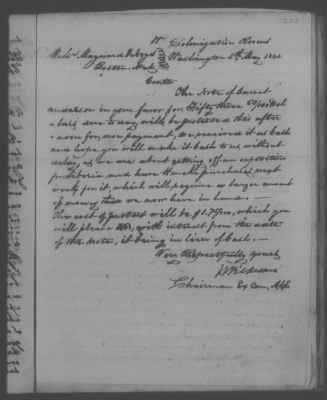 Colonization Rooms
Messrs Maynard & Noyes Washington 5th May 1841
Boston, Mass
Gents
The Note of
in your favor for Fifty three Dol
lars due to day, will be protested this after
noon for non payment, we received it as Cash
and hope you will make it back to us without
delay, as we are about getting off an expedition
to Liberia, and have the purchases
for it, which will require a larger amount
of money than we now have in hand. —
The cost of protest will be $1.75, which you
will please with interest from the date
of the note, it being in lieu of Cash. —
Very Respectfully yours
Wilkeson
Chairman Ex Com,